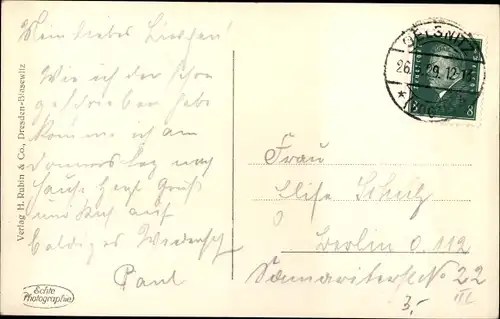 Mein liebes Lieschen!
Wie ich Dir schon
geschrieben habe
komme ich am
Donnerstag nach
Hause. Herzl Gruß
und Kuß auf
baldiges Wiederseh
Paul
Verlag H. Rubin & Co., Dresden-Blasewitz
Echte
Photographie
OELSNITZ
26. .29.12-13
* (ERZGEB.) *
8
Frau
Elise Schulz
Berlin O. 112
Samariterstr No 22
III
3,-